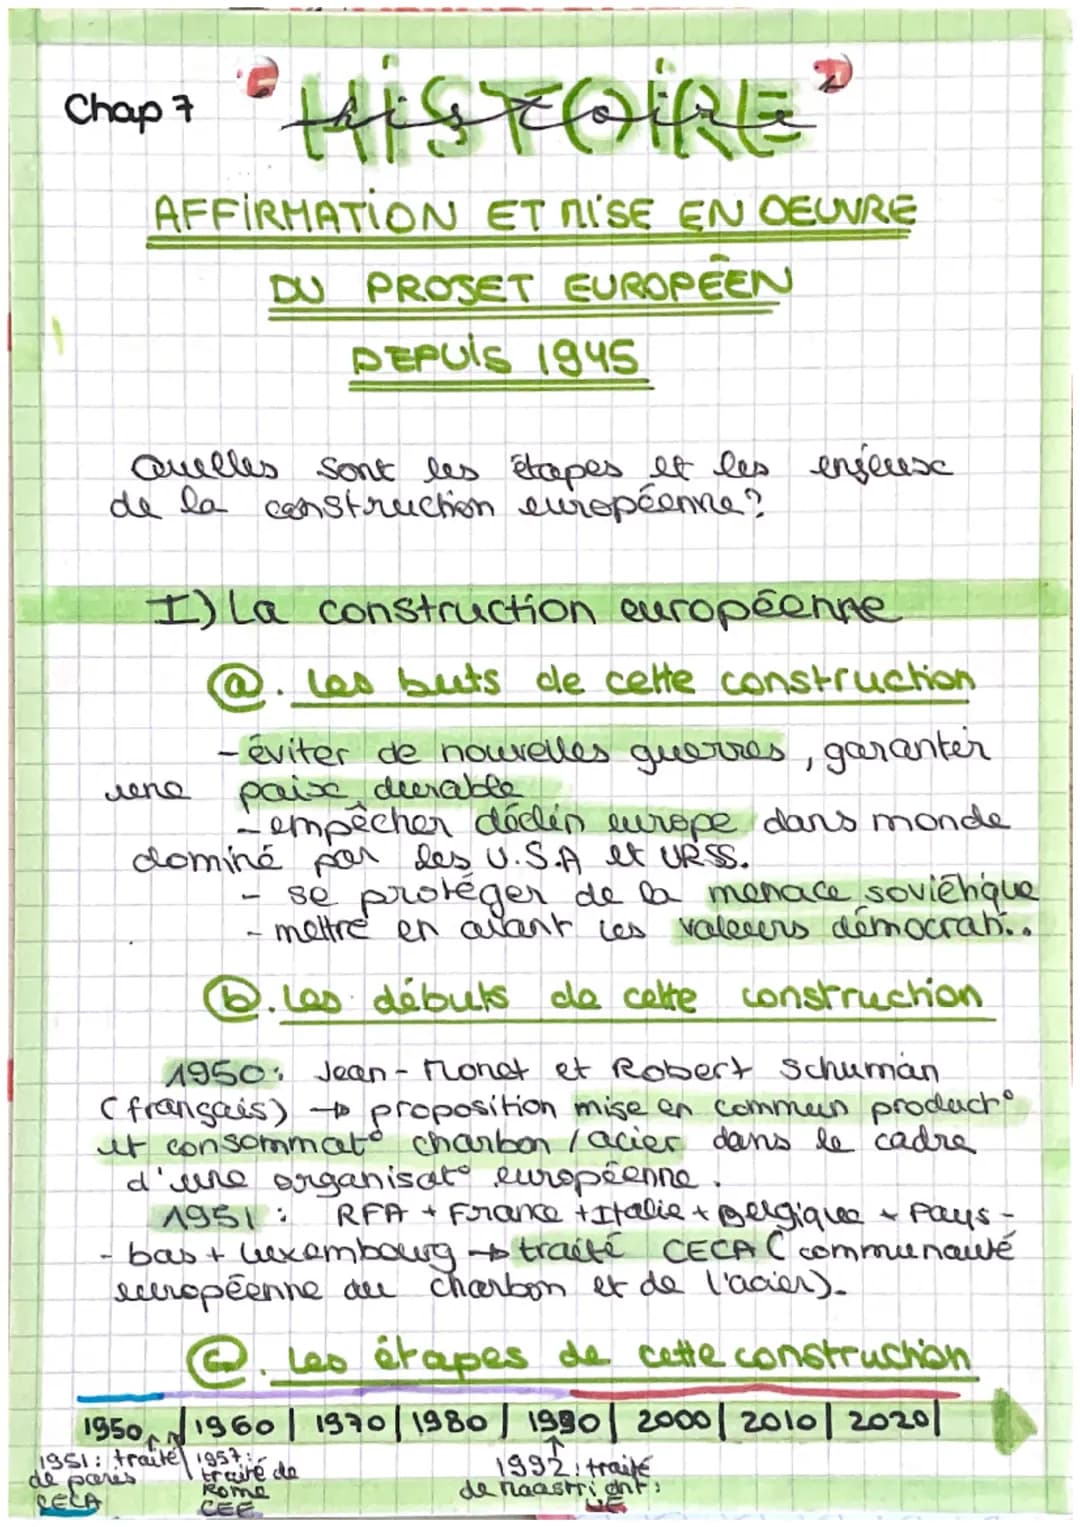 Chap 7
HISTOIRE
histoire
AFFIRMATION ET MISE EN OEUVRE
DU PROJET EUROPÉEN
DEPUIS 1945
Quelles sont les étapes et les enjeux
de la construction européenne ?
I) La construction européenne
a. Les buts de cette construction
- éviter de nouvelles guerres, garantir
une paix durable
- empêcher déclin europe dans monde
dominé par les U.S.A et URSS.
- se protéger de la menace soviétique
- mettre en avant les valeurs démocrati..
b. Les débuts de cette construction
1950 : Jean-Monet et Robert Schuman
(français) → proposition mise en commun product°
et consommat° charbon / acier dans le cadre
d'une organisat° européenne.
1951 : RFA + France + Italie + Belgique + Pays-
-bas + Luxembourg → traité CECA (communauté
européenne du charbon et de l'acier).
c. Les étapes de cette construction
1950 | 1960 | 1970 | 1980 | 1990 | 2000 | 2010 | 2020 |
1951 : traité de paris CECA
1957 : traité de Rome CEE
1992 : traité de Maastricht : UE